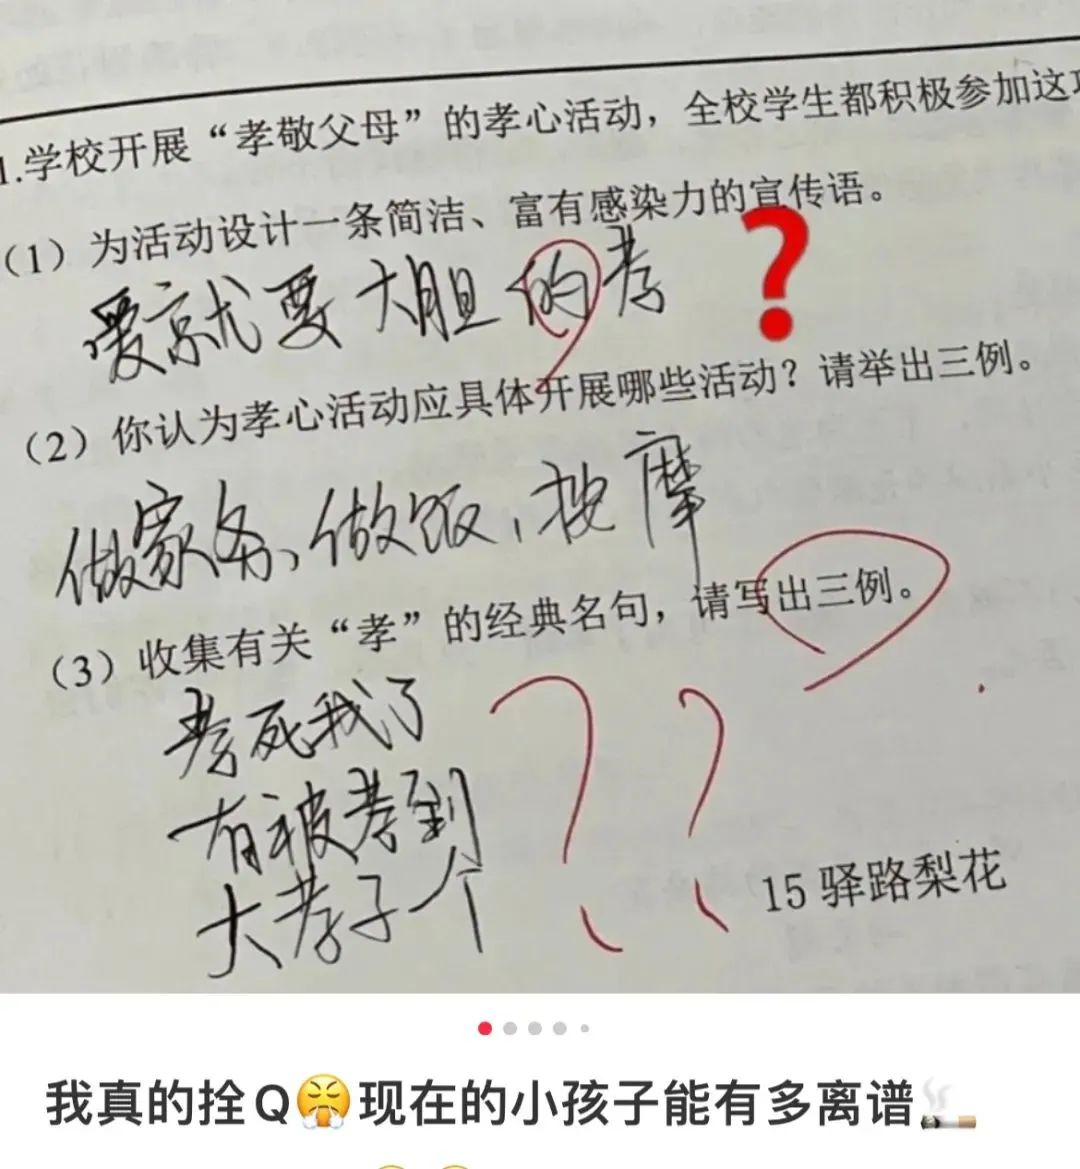 1.学校开展“孝敬父母”的孝心活动，全校学生都积极参加这
（1）为活动设计一条简洁、富有感染力的宣传语。
爱就要大胆的孝 ❓
（2）你认为孝心活动应具体开展哪些活动？请举出三例。
做家务、做饭，按摩
（3）收集有关“孝”的经典名句，请写出三例。
孝死我了 ？？
有被孝到
大孝子一个
15 驿路梨花
我真的拴Q😤现在的小孩子能有多离谱🚬